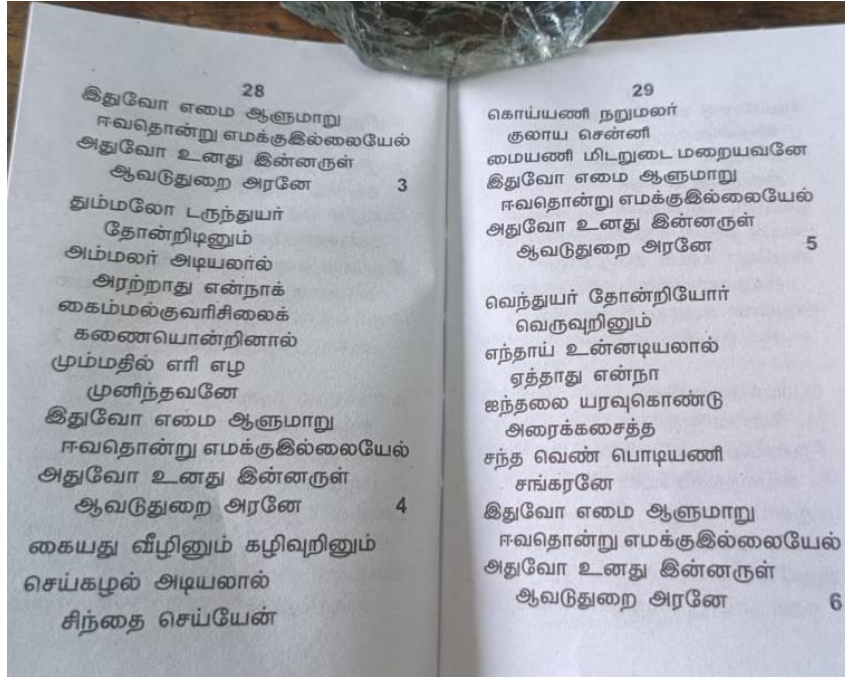 28
இதுவோ எமை ஆளுமாறு
ஈவதொன்று எமக்குஇல்லையேல்
அதுவோ உனது இன்னருள்
ஆவடுதுறை அரனே 3
தும்மலோ டருந்துயர்
தோன்றிடினும்
அம்மலர் அடியலால்
அரற்றாது என்நாக்
கைம்மல்குவரிசிலைக்
கணையொன்றினால்
மும்மதில் எரி எழ
முனிந்தவனே
இதுவோ எமை ஆளுமாறு
ஈவதொன்று எமக்குஇல்லையேல்
அதுவோ உனது இன்னருள்
ஆவடுதுறை அரனே 4
கையது வீழினும் கழிவுறினும்
செய்கழல் அடியலால்
சிந்தை செய்யேன்
29
கொய்யணி நறுமலர்
குலாய சென்னி
மையணி மிடறுடை மறையவனே
இதுவோ எமை ஆளுமாறு
ஈவதொன்று எமக்குஇல்லையேல்
அதுவோ உனது இன்னருள்
ஆவடுதுறை அரனே 5
வெந்துயர் தோன்றியோர்
வெருவுறினும்
எந்தாய் உன்னடியலால்
ஏத்தாது என்நா
ஐந்தலை யரவுகொண்டு
அரைக்கசைத்த
சந்த வெண் பொடியணி
சங்கரனே
இதுவோ எமை ஆளுமாறு
ஈவதொன்று எமக்குஇல்லையேல்
அதுவோ உனது இன்னருள்
ஆவடுதுறை அரனே 6